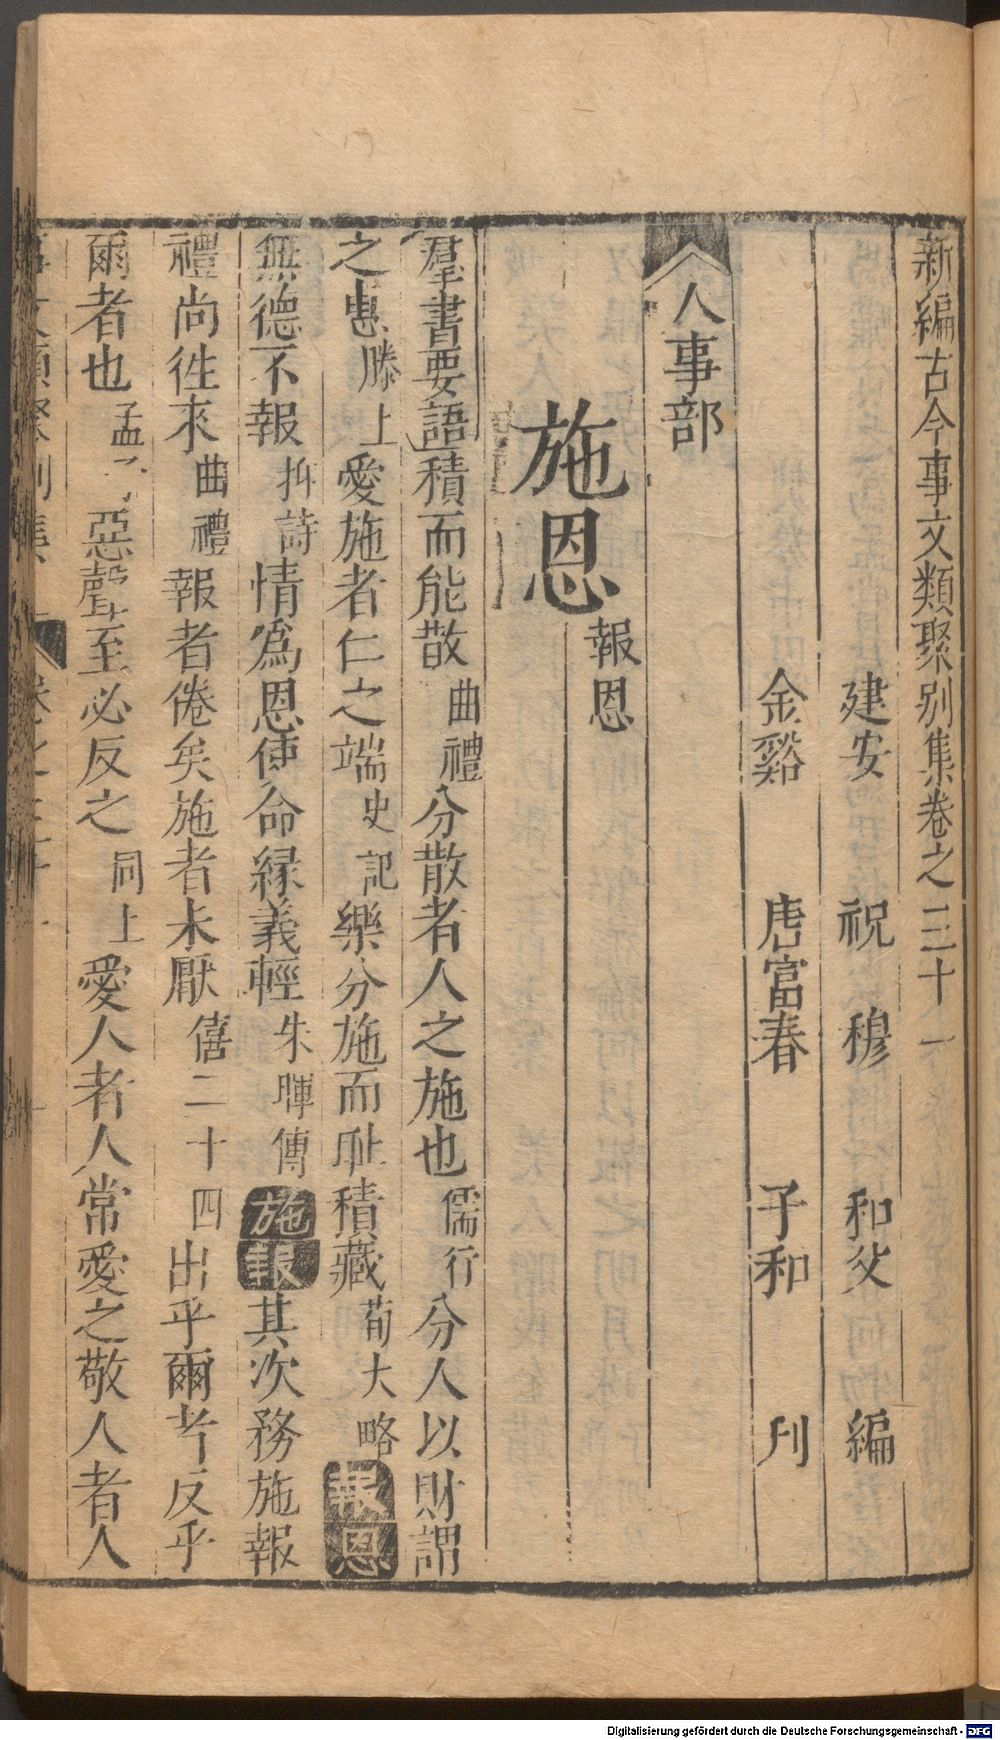 新編古今事文類聚别集卷之三十一
建安 祝 穆 和父 編
金谿 唐富春 子和 刋
人事部
施恩 報恩
羣書要語積而能散曲禮分散者人之施也儒行分人以財謂
之惠滕上愛施者仁之端史記樂分施而恥積藏荀大略報恩
無德不報抑詩情爲恩使命緣義輕朱暉傳施報其次務施報
禮尚徃來曲禮報者倦矣施者未厭僖二十四出乎爾者反乎
爾者也孟 惡聲至必反之同上愛人者人常愛之敬人者人
事文類聚别集 卷之三十一
Digitalisierung gefördert durch die Deutsche Forschungsgemeinschaft - DFG